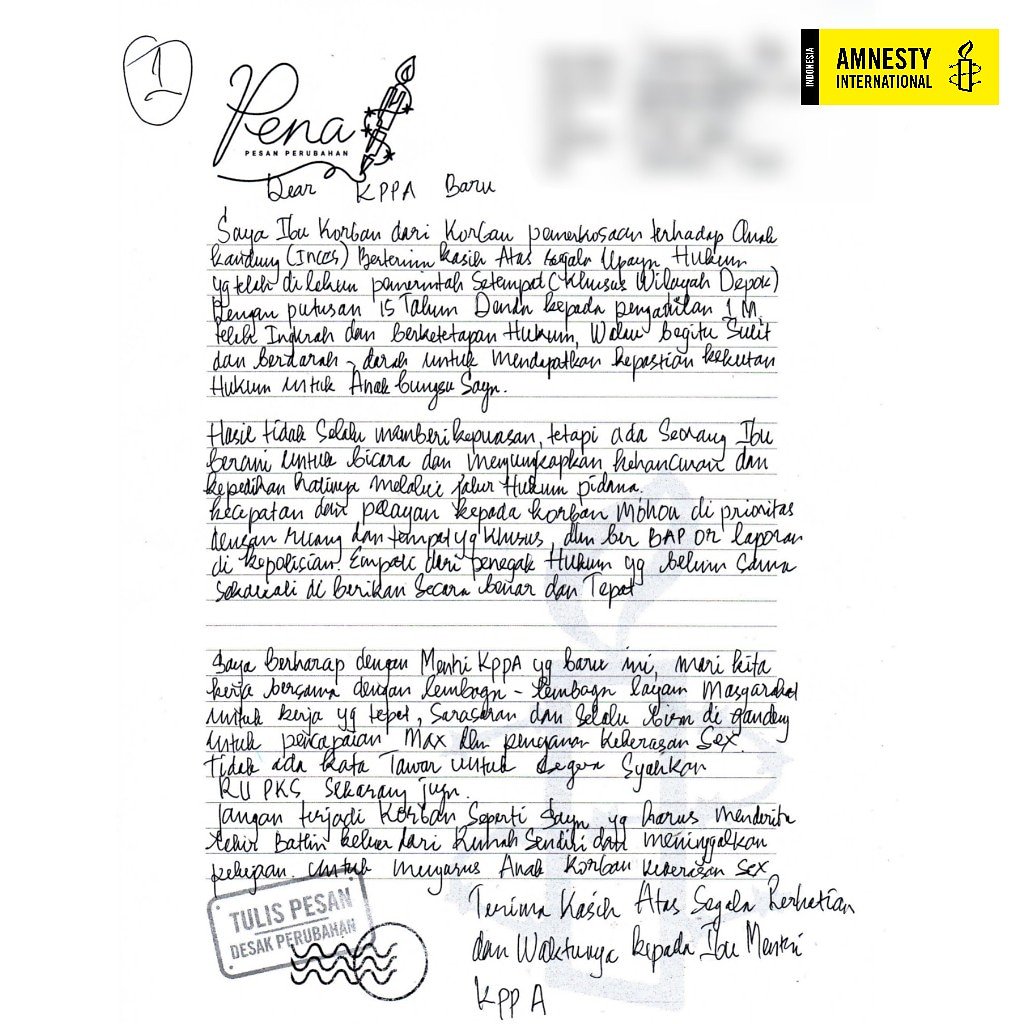 1
INDONESIA
AMNESTY
INTERNATIONAL
Pena
PESAN PERUBAHAN
Dear KPPA Baru
Saya Ibu Korban dari Korban pemerkosaan terhadap Anak
kandung (Inces) Berterima kasih Atas segala Upaya Hukum
yg telah di lakukan pemerintah Setempat (Khusus Wilayah Depok)
Dengan putusan 15 Tahun Denda kepada pengadilan 1 M.
telah Inkrah dan berketetapan Hukum, Walau begitu Sulit
dan Berdarah - darah untuk Mendapatkan kepastian kekuatan
Hukum untuk Anak bungsu Saya.
Hasil tidak Selalu memberi kepuasan, tetapi ada Seorang Ibu
berani untuk bicara dan mengungkapkan kehancuran dan
kepedihan hatinya melalui jalur Hukum pidana.
kecepatan dan pelayan kepada korban Mohon di prioritas
dengan ruang dan tempat yg khusus, dlm ber BAP or laporan
di kepolisian. Empati dari penegak Hukum yg belum Sama
Sekali di berikan Secara benar dan Tepat
Saya berharap dengan Mentri KPPA yg baru ini, mari kita
kerja bersama dengan lembaga - lembaga layan Masyarakat
untuk kerja yg tepat, Sarasaran dan Selalu di gandeng
untuk pencapaian Max dlm penganan kekerasan Sex.
Tidak ada kata Tawar untuk Segera Syahkan
RU PKS Sekarang juga.
Jangan terjadi Korban Seperti Saya yg harus Menderita
Lahir Bathin keluar dari Rumah Sendiri dan meninggalkan
pekerjaan. Untuk mengurus Anak Korban kekerasan Sex
Terima Kasih Atas Segala Perhatian
dan Waktunya kepada Ibu Mentri
KPPA
TULIS PESAN
DESAK PERUBAHAN